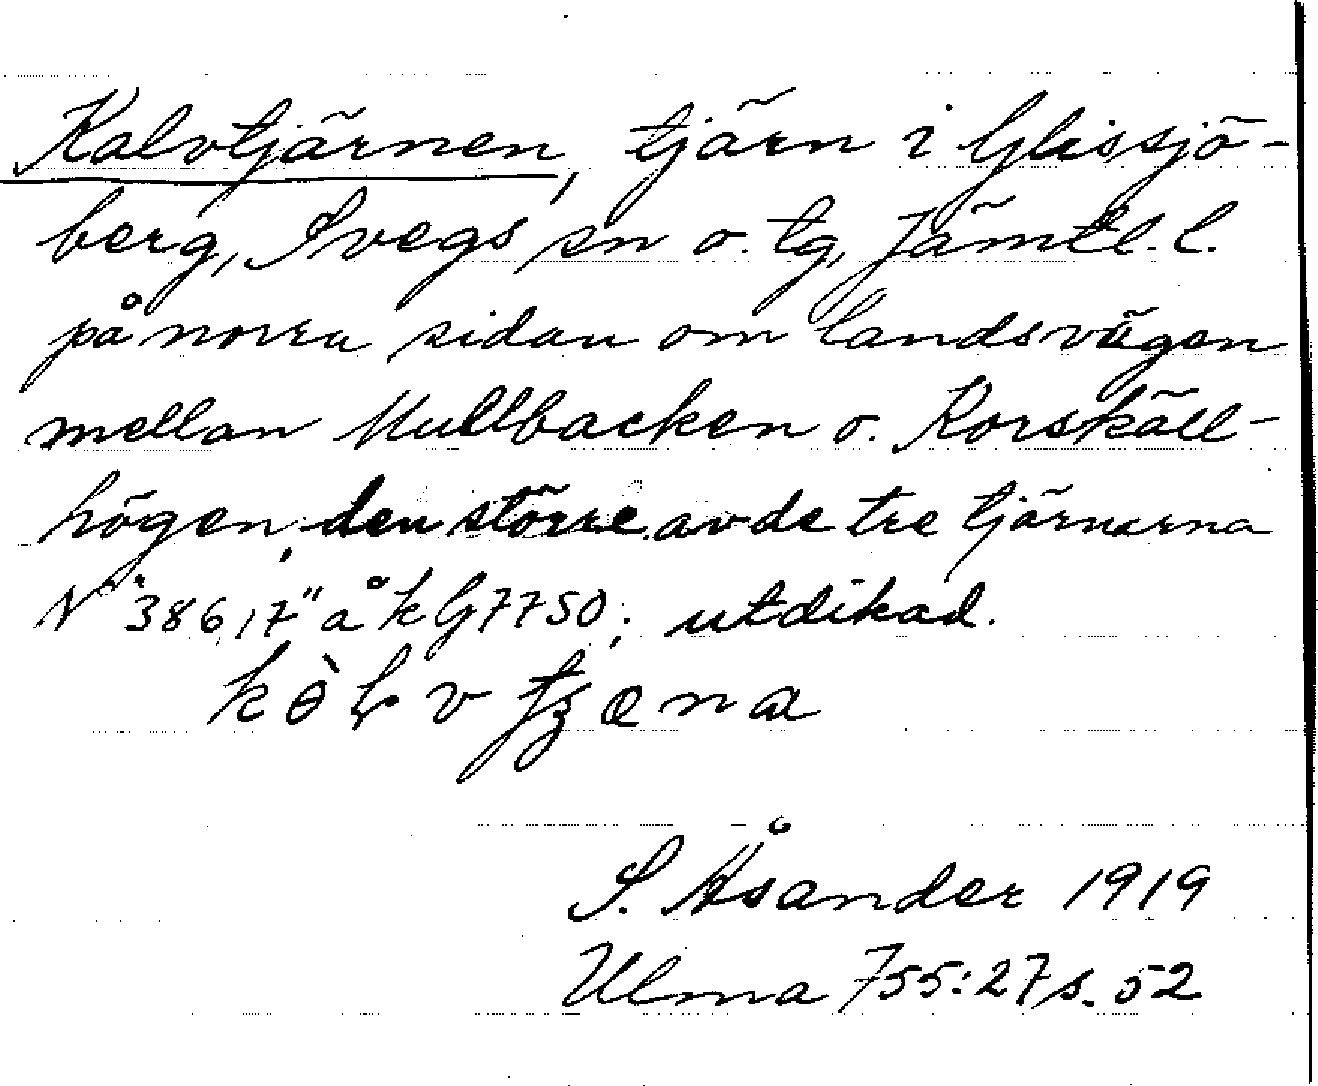 Kalvtjärnen, tjärn i Glissjö-
berg, Svegs sn o. tg, Jämtl. l.
på norra sidan om landsvägen
mellan Mullbacken o. Korskäll-
högen, den större av de tre tjärnarna
N "386,17" å k G7750; utdikad.

S. Åsander 1919
Ulma 755:27 s. 52